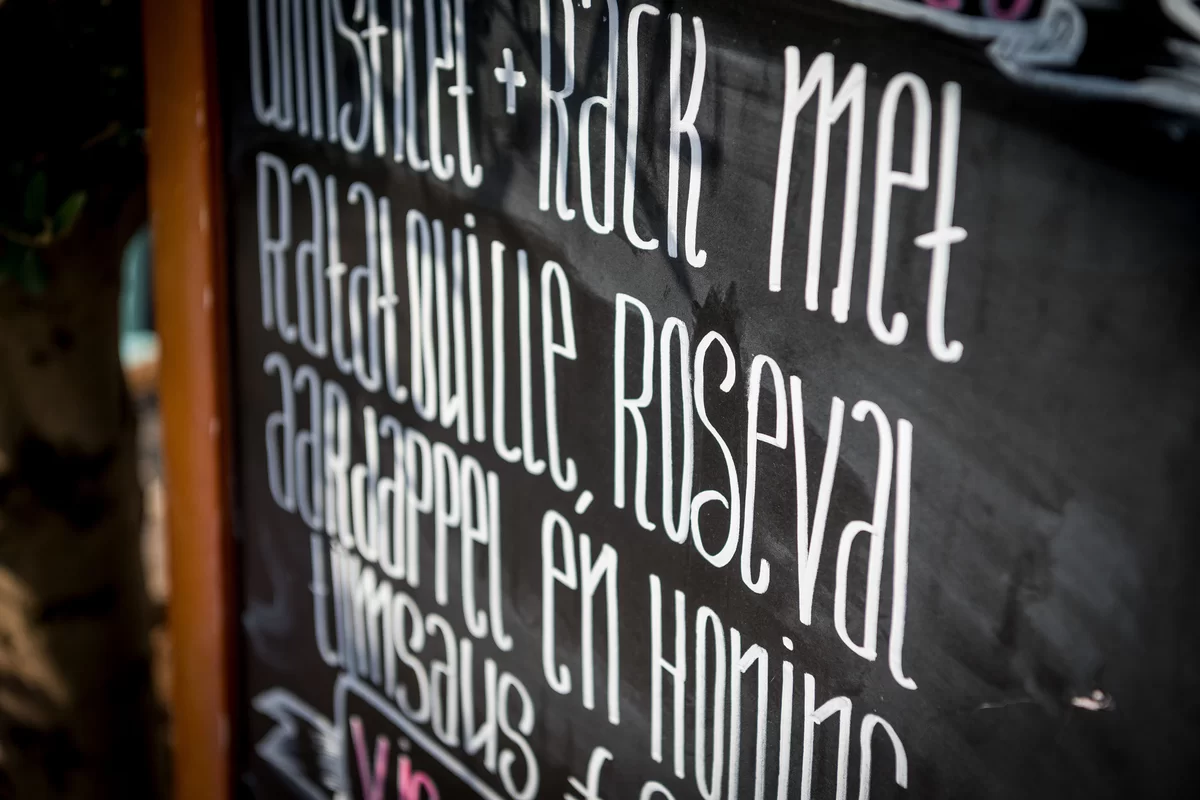 Lamsfilet + Rack met
Ratatouille, Roseval
aardappel én Honing
tijmsaus